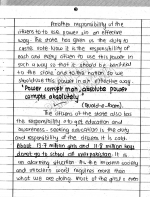 Another responsibility of the
citizens to to use power in an effective
way. The state has given us the duty to
caste vote. Now it is the responsibility of
each and every citizen to use this power in
such a way so that it should be beneficial
to the state and to the nation. So we
should use this power in an effective way.
"Power corrupt man, absolute power
corrupts absolutely"
(Quaid-e-Azam)
The citizens of the state also has
the responsibility to get education and
awareness. Seeking education is the duty
and responsibility of the citizens. It is said
About 13.7 million girls and 11.8 million boys
donot go to school all over pakistan. It is
an alarming situation. As the modern society
and modern world requires more than
what we are doing. Most of the great men